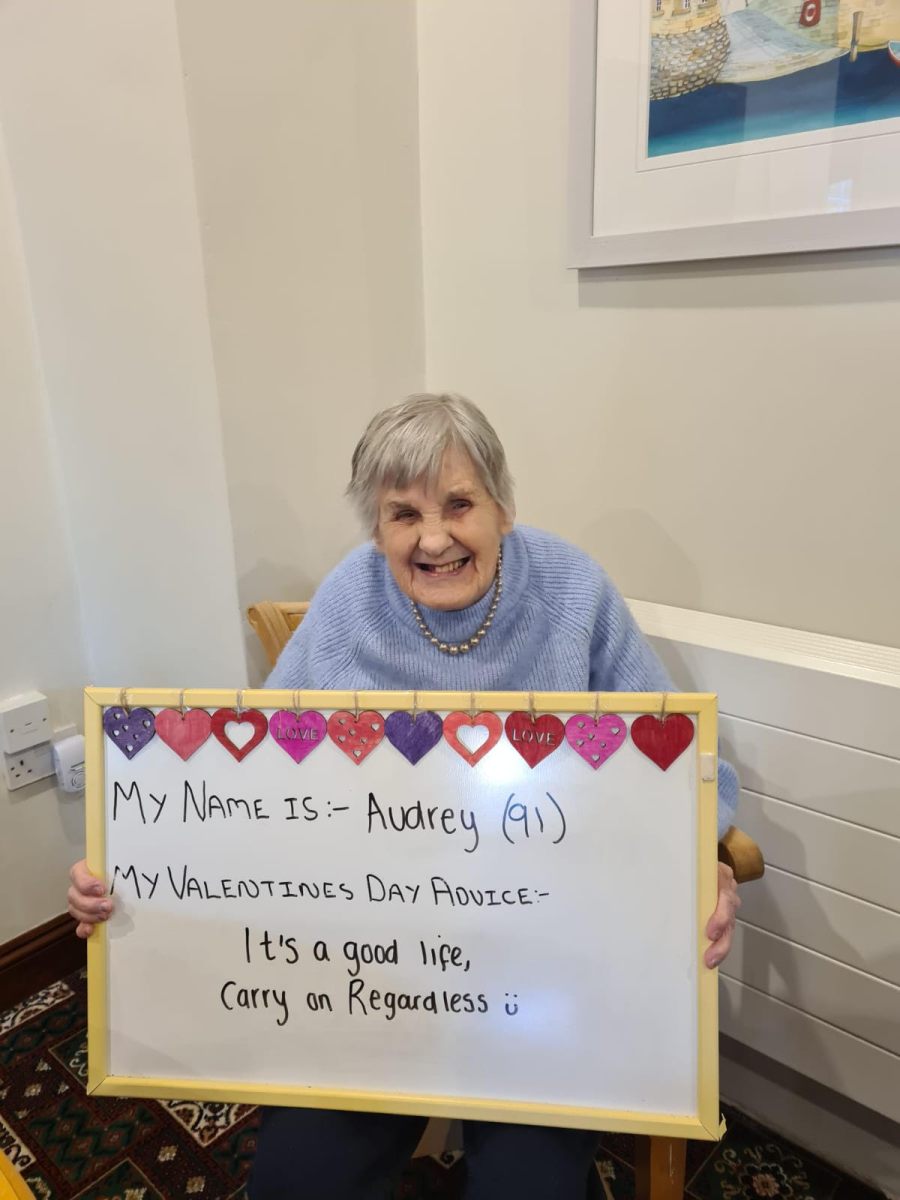 LOVE LOVE
My Name is:- Audrey (91)
My Valentines Day Advice:-
It's a good life,
Carry on Regardless ü